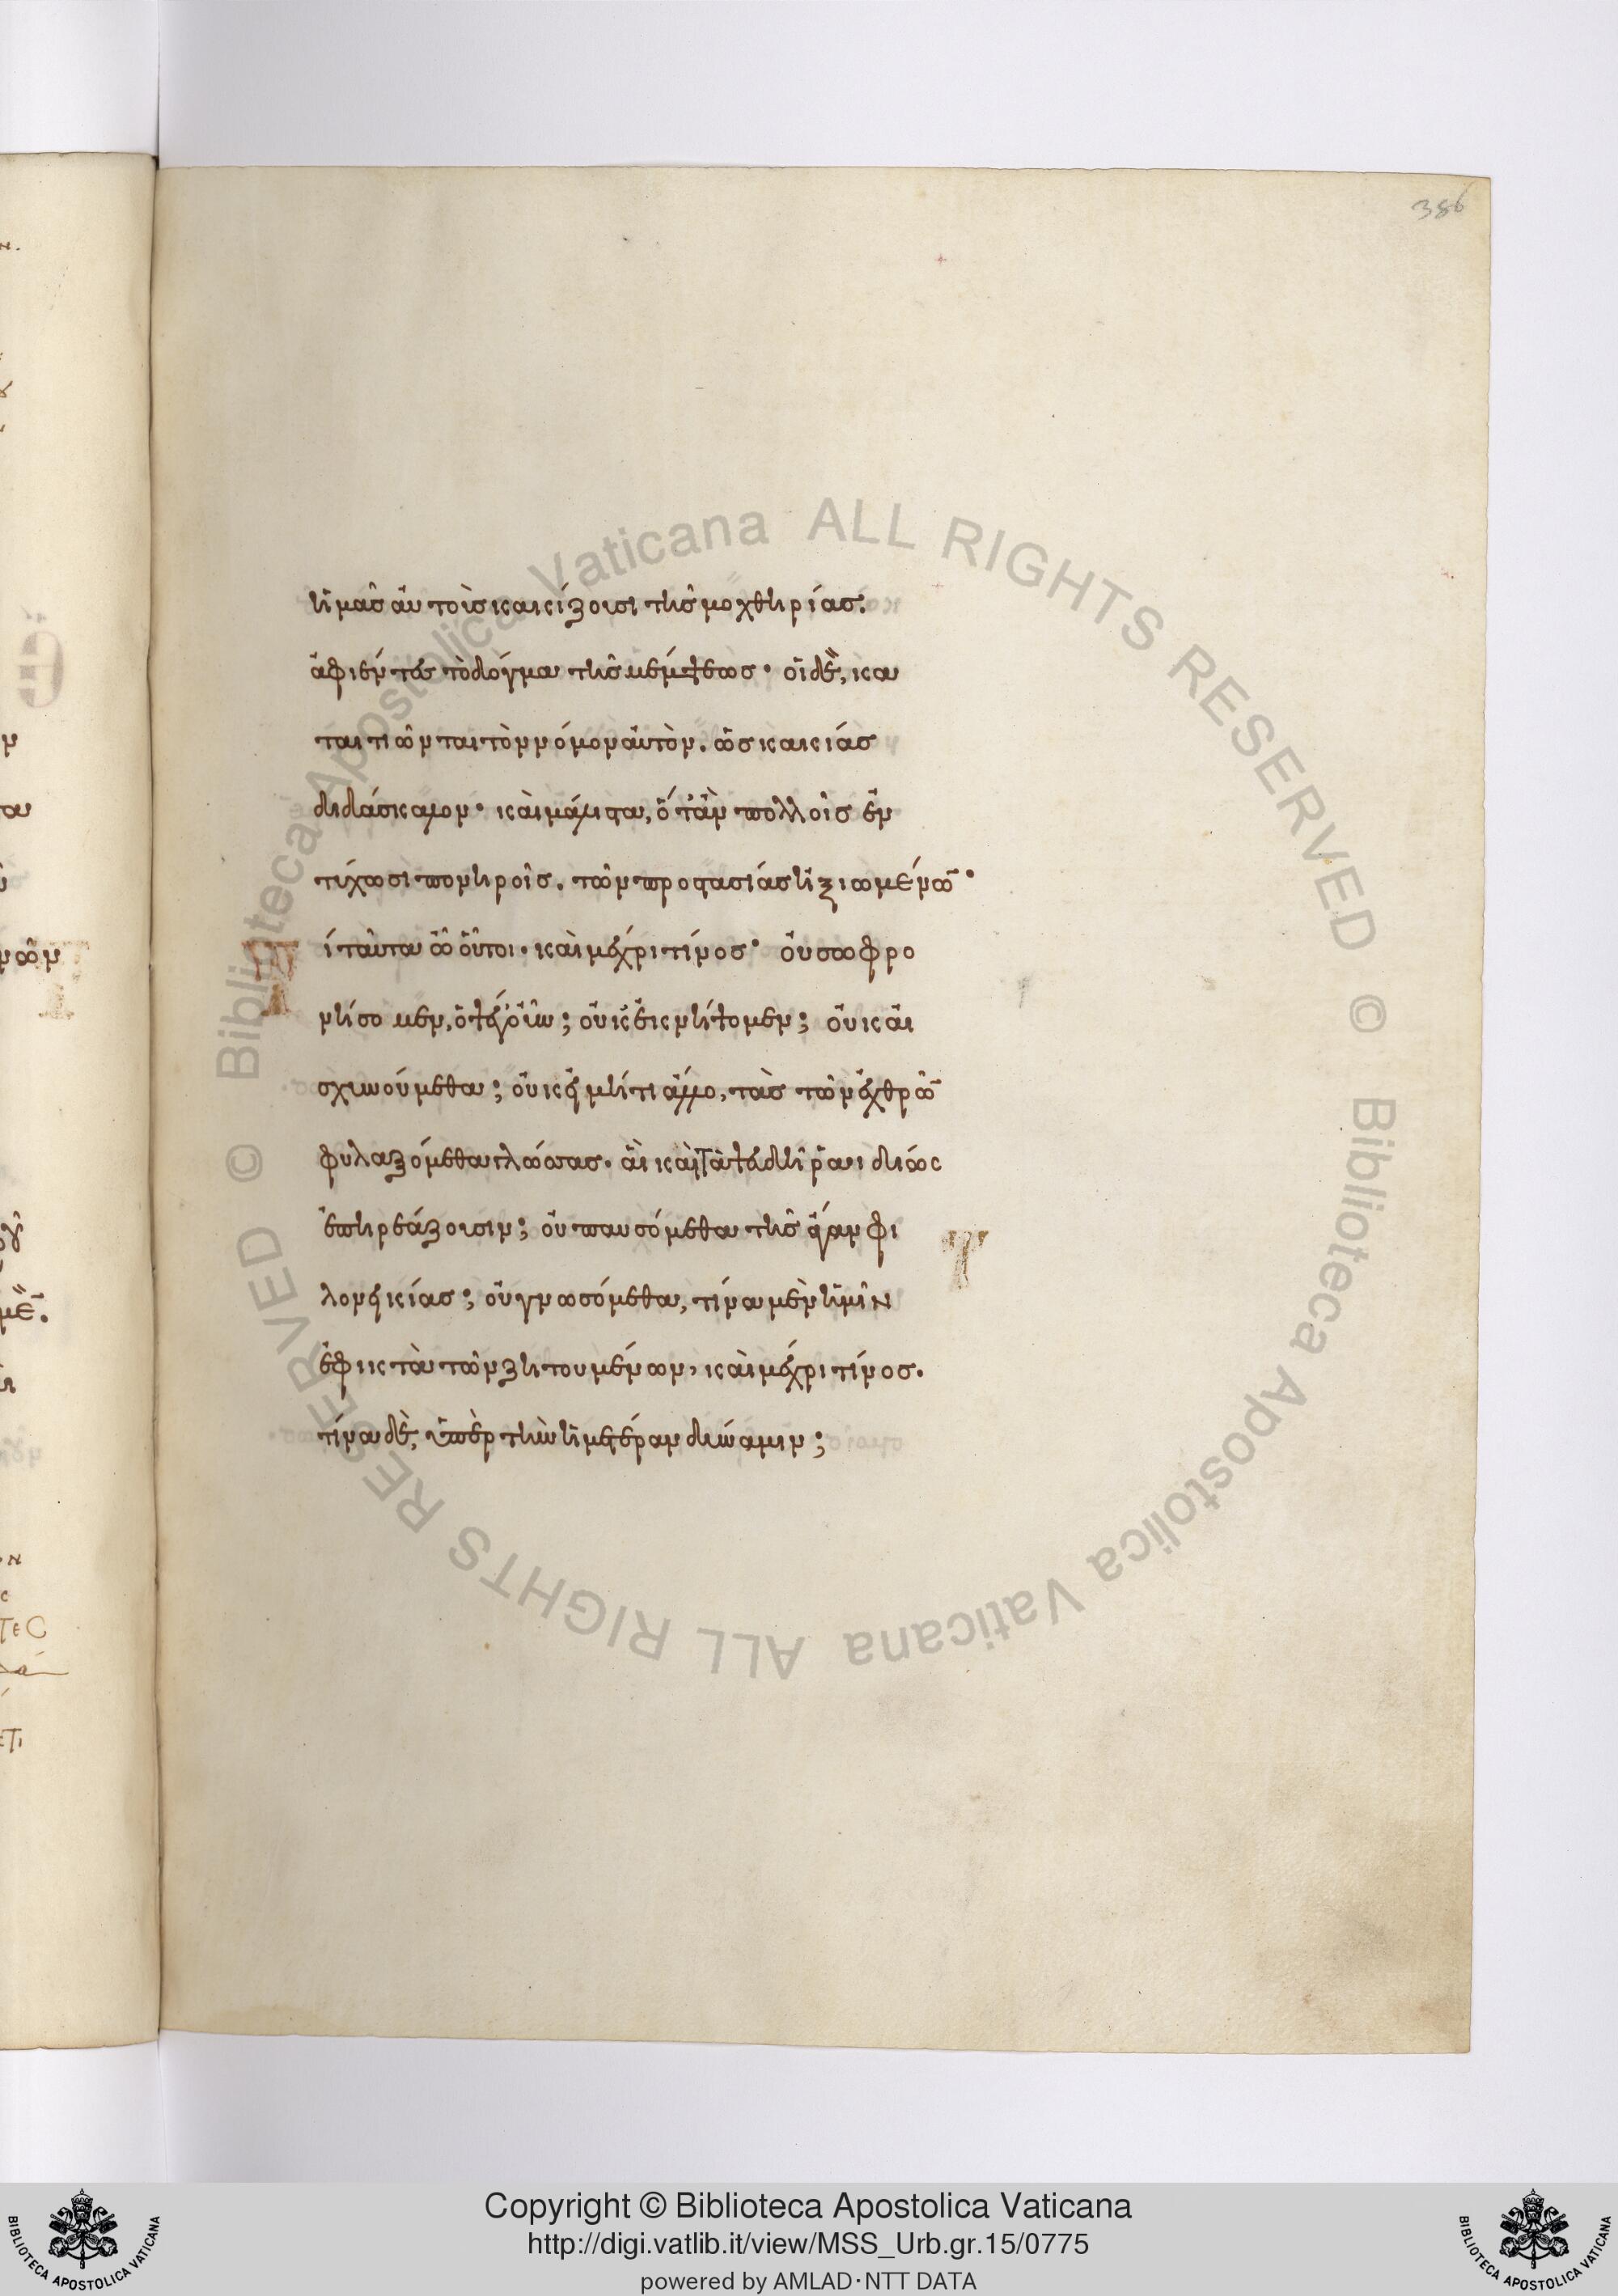 ἡμᾶς αὐτοὺς κακίζουσι τῆς μοχθηρίας.
ἀφιέντες τὸ δόγμα τῆς μέμψεως· οἱ δὲ, κα
ταιτιῶνται τὸν νόμον αὐτὸν. ὡς κακίας
διδάσκαλον· καὶ μάλιστα, ὅταν πολλοῖς ἐν
τύχωσι πονηροῖς. τῶν προστασίας ἠξιωμένων·
Τί ταῦτα ὦ οὗτοι· καὶ μέχρι τίνος· οὐ σωφρο
νήσομεν, ὀψέ γοῦν; οὐκ ἐκνήψομεν; οὐκ αἰ
σχυνούμεθα; οὐκ εἰ μή τι ἄλλο, τὰς τῶν ἐχθρῶν
φυλαξόμεθα γλώσσας. αἳ καὶ τὰ ψευδῆ ῥαιδίως
ἐπηρεάζουσιν; οὐ παυσόμεθα τῆς ἄγαν φι
λονεικίας; οὐ γνωσόμεθα, τίνα μὲν ἡμῖν
ἐφικτὰ τῶν ζητουμένων, καὶ μέχρι τίνος.
τίνα δὲ, ὑπὲρ τὴν ἡμετέραν δύναμιν;
386
Copyright © Biblioteca Apostolica Vaticana
http://digi.vatlib.it/view/MSS_Urb.gr.15/0775
powered by AMLAD·NTT DATA
BIBLIOTECA APOSTOLICA VATICANA
BIBLIOTECA APOSTOLICA VATICANA
© Biblioteca Apostolica Vaticana ALL RIGHTS RESERVED © Biblioteca Apostolica Vaticana ALL RIGHTS RESERVED